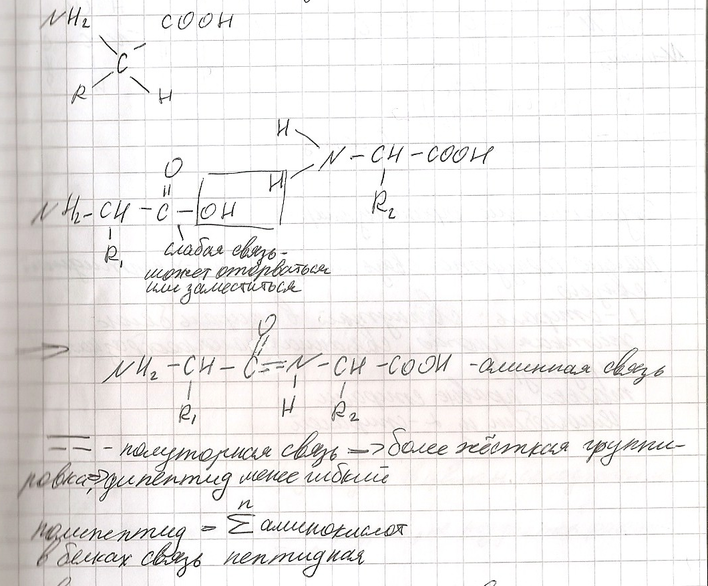 NH2 COOH
C
R H
H
N - CH - COOH
H
R2
O
NH2 - CH - C - OH
R1
слабая связь -
может оторваться
или заместиться
O
=> NH2 - CH - C = N - CH - COOH - аминная связь
R1 H R2
== - полуторная связь => более жёсткая группи-
ровка => дипептид менее гибкий
n
полипептид = Σ аминокислот
в белках связь пептидная